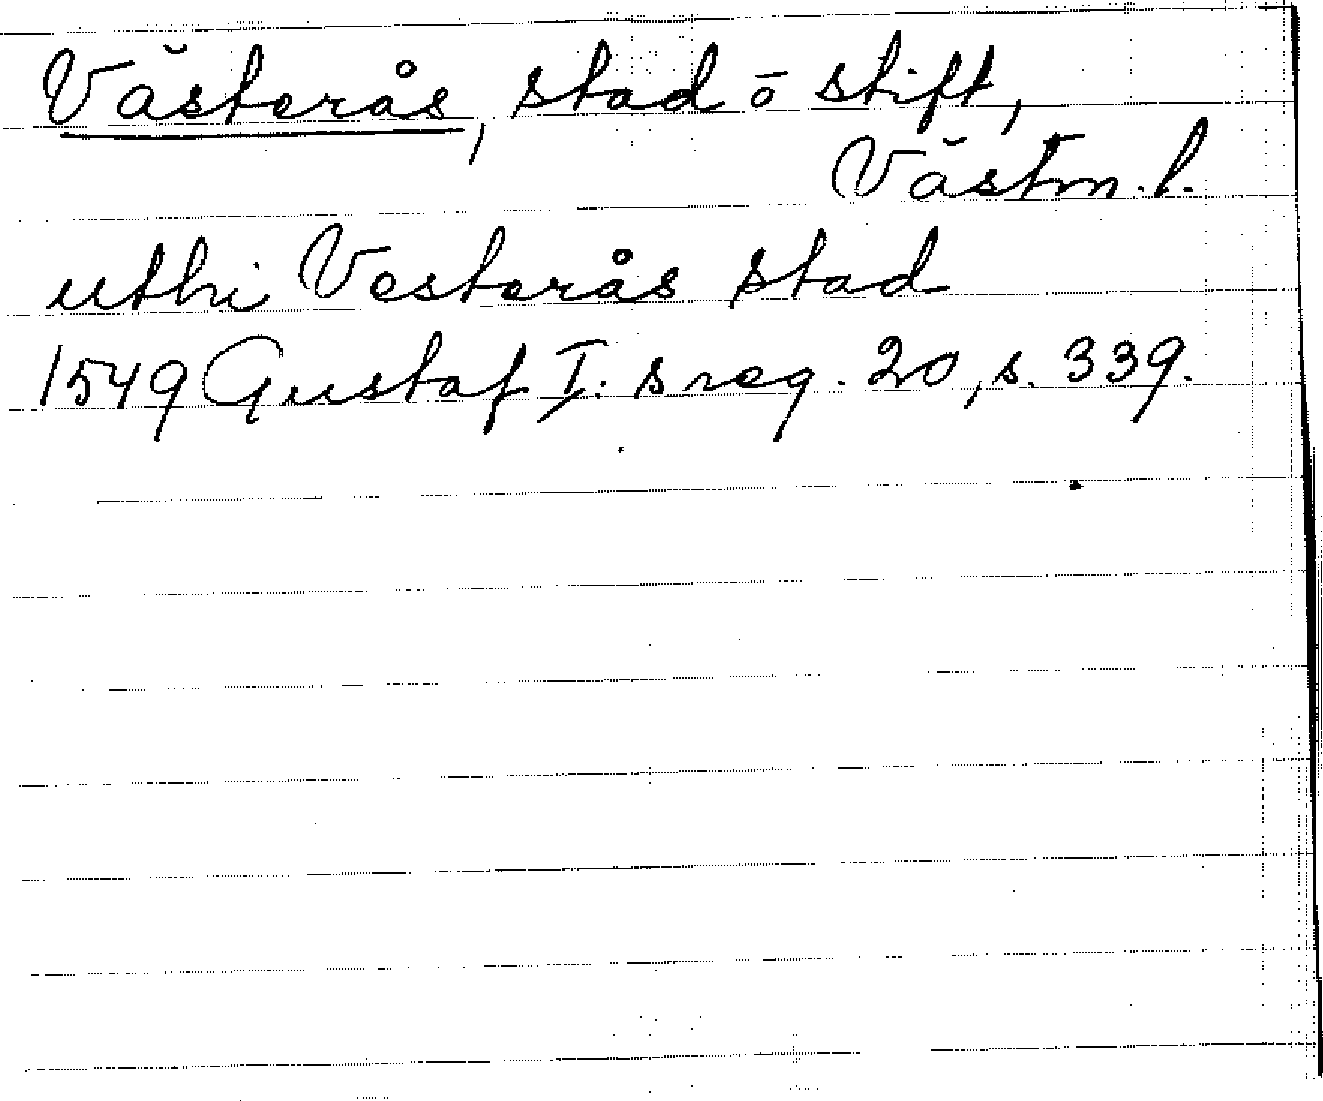 Västerås, stad o stift,
Västm. l.
uthi Vesterås stad
1549 Gustaf I:s reg. 20, s. 339.